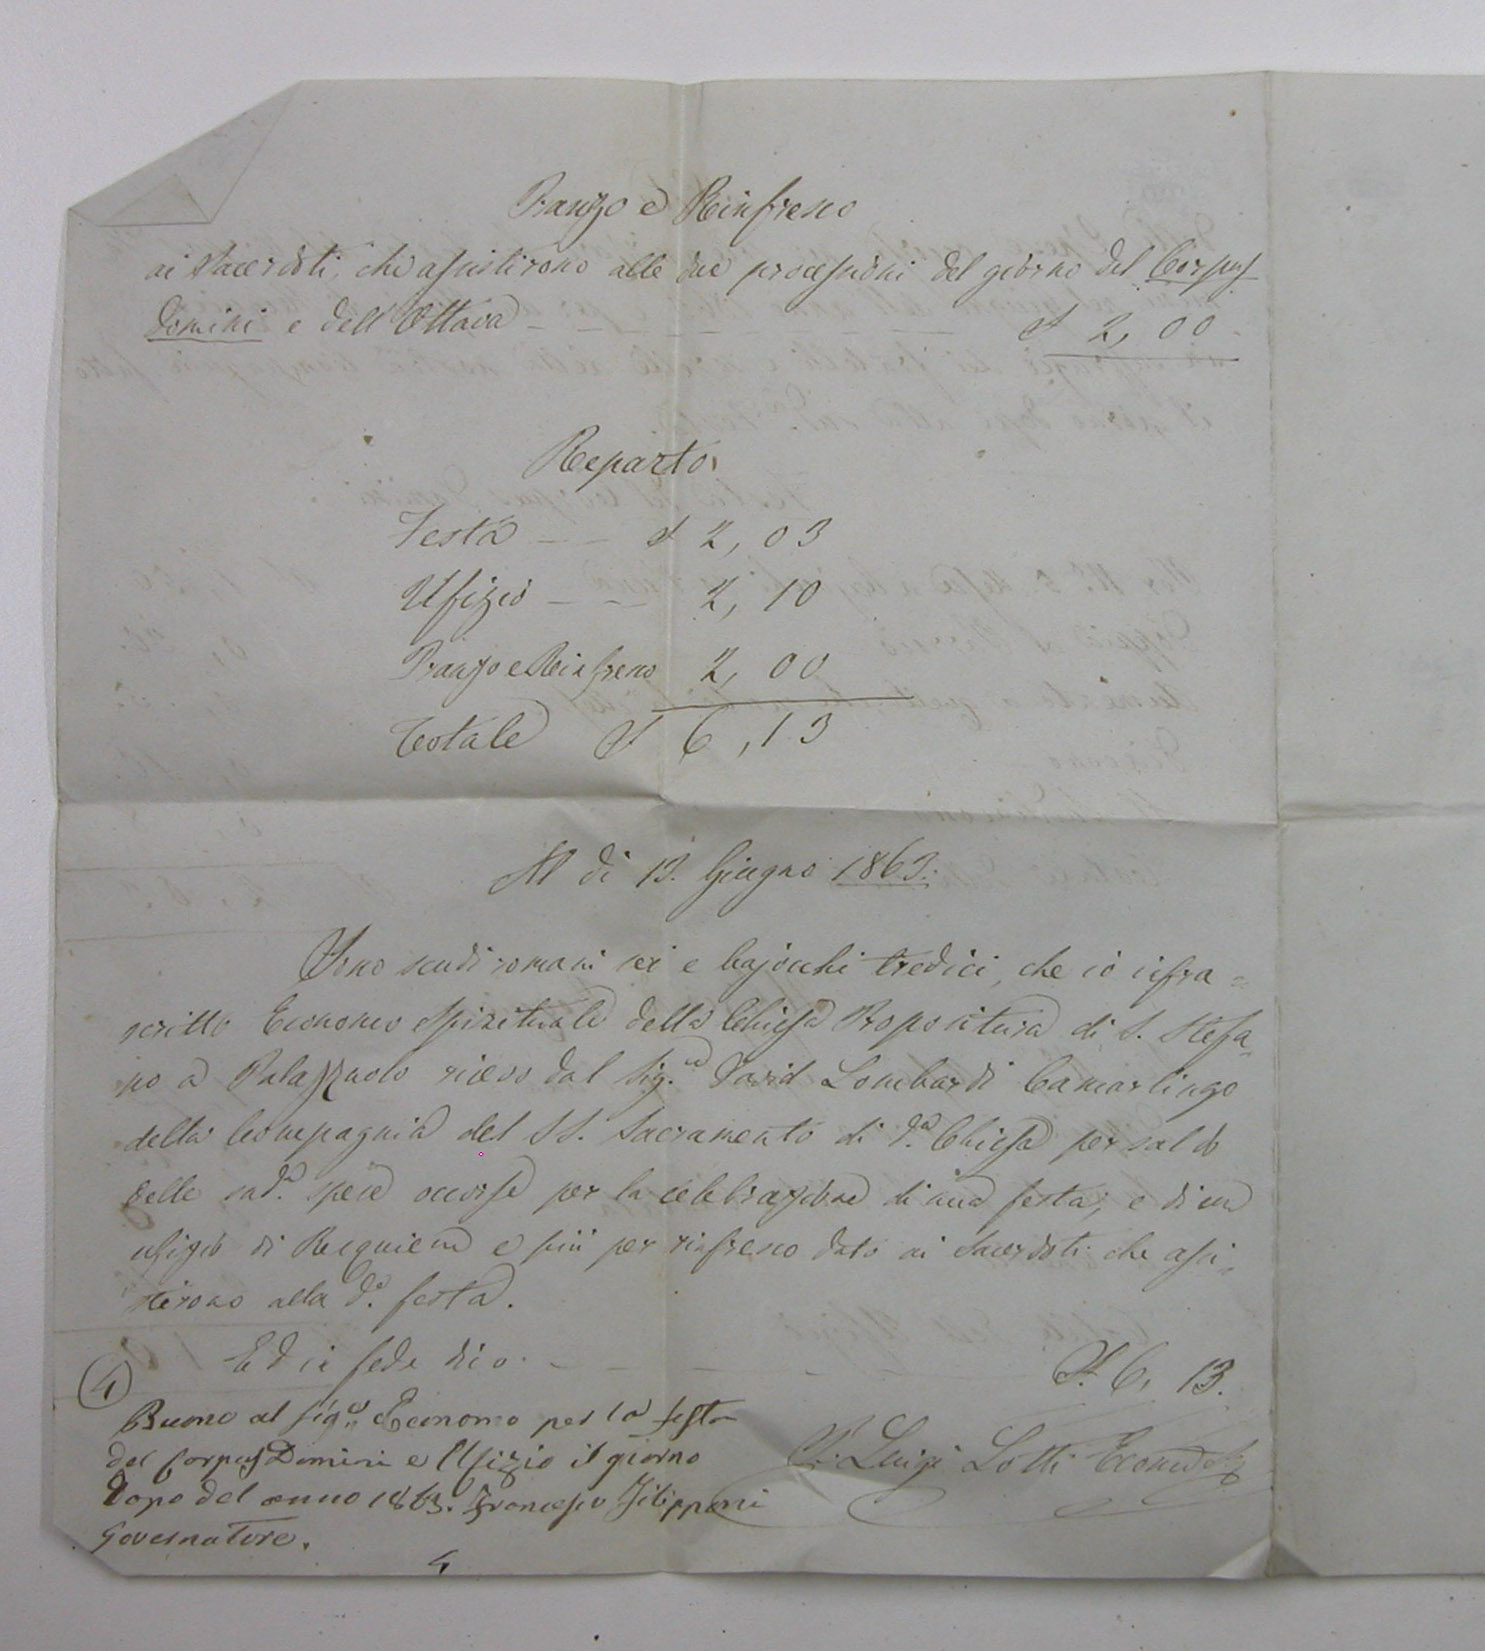 Pranzo e Rinfresco
ai Sacerdoti, che assistirono alle due processioni del giorno del Corpus
Domini e dell'Ottava - - - - - - £ 2, 00
Reparto
Festa - - £ 2, 03
Ufizio - - 2, 10
Pranzo e Rinfresco 2, 00
Totale £ 6, 13
Al di 13. Giugno 1863.
Sono scudi romani sei e bajocchi tredici, che io infra=
scritto Economo Spirituale della Chiesa Propositura di S. Stefa=
no a Palazzuolo ricevo dal Sig.e David Lombardi Camarlingo
della Compagnia del SS. Sacramento di d.a Chiesa per saldo
delle sud.e spese occorse per la celebrazione di una festa, e di un
ufizio di Requiem e più per rinfresco dato ai Sacerdoti che assi=
stirono alla d.a festa.
Ed in fede dico - - - - £. 6, 13.
P. Luigi Lotti Econo
4
Buono al sig.e Economo per la festa
del Corpus Domini e Ufizio il giorno
Dopo del anno 1863. Francesco Filipponi
Governatore.
4